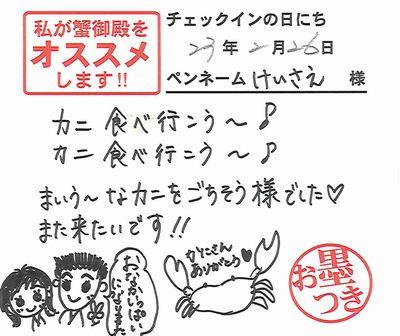 私が蟹御殿を
オススメ
します!!
チェックインの日にち
23年2月26日
ペンネーム けいさえ 様
カニ食べ行こう〜♪
カニ食べ行こう〜♪
まいう〜なカニをごちそう様でした♡
また来たいです!!
おなかいっぱい
になりました
かにさん
ありがとう♡
お墨
つき